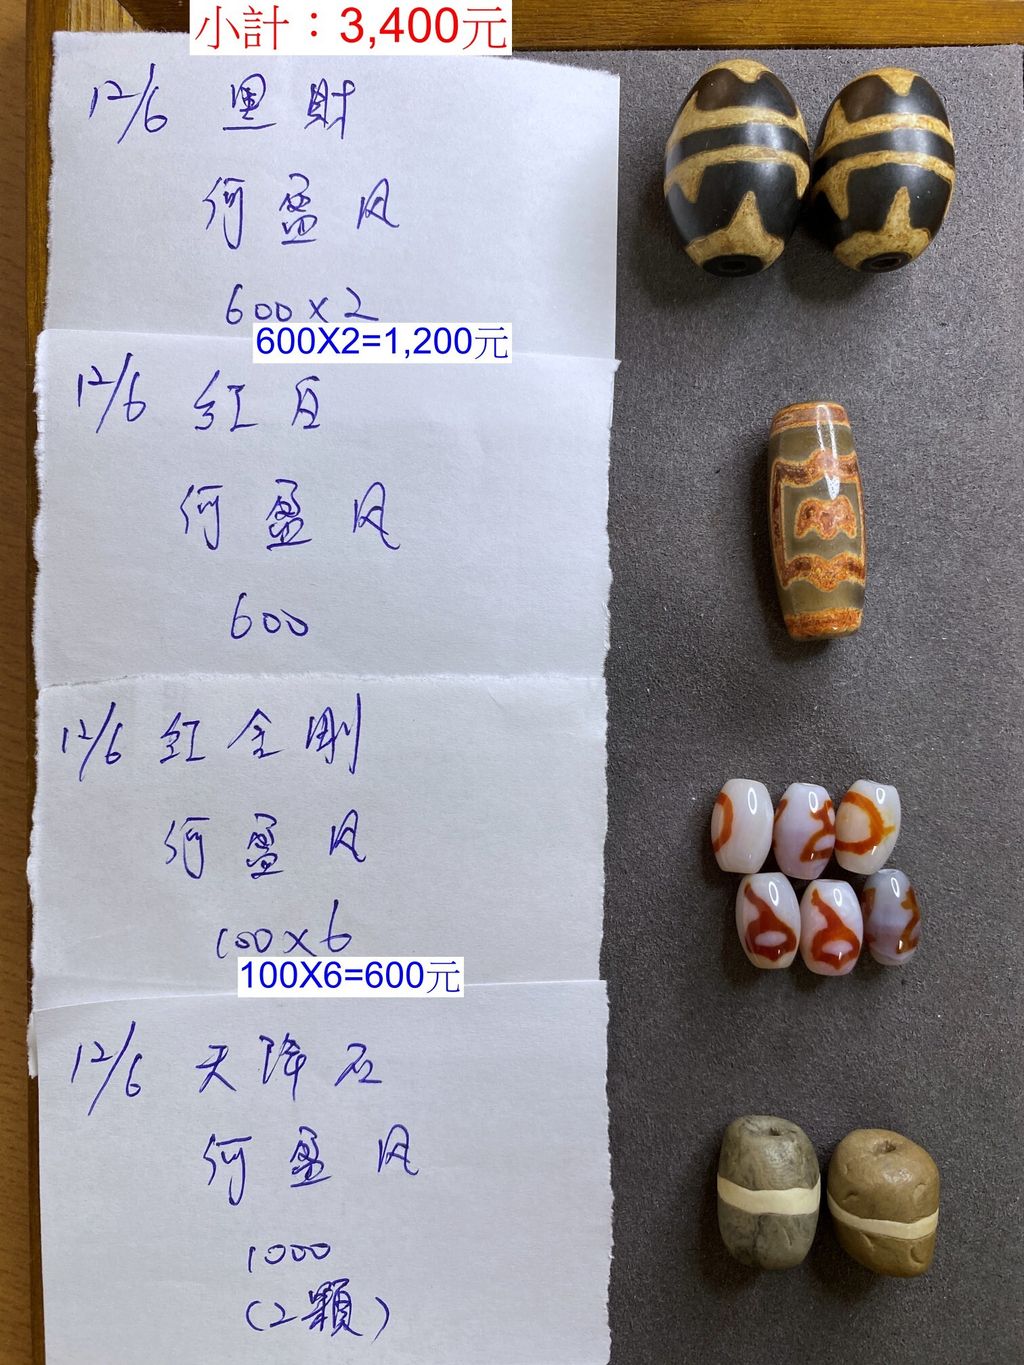 小計：3,400元
12/6 黑財
何盈風
600x2
600X2=1,200元
12/6 紅
何盈風
600
12/6 紅金剛
何盈風
100x6
100X6=600元
12/6 天降石
何盈風
1000
(2顆)